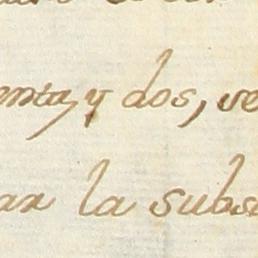 enta, y dos, ve
ar la subs